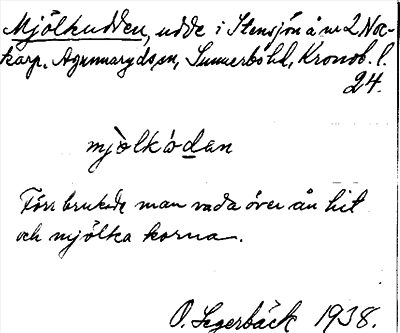 Mjölkudden, udde i Stensjön å nr 2 Noc-
karp, Agunnaryds sn, Sunnerbo hd, Kronob. l.
24.
mjölkòdan
Förr brukade man vada över ån hit
och mjölka korna.
O. Segerbäck 1938.